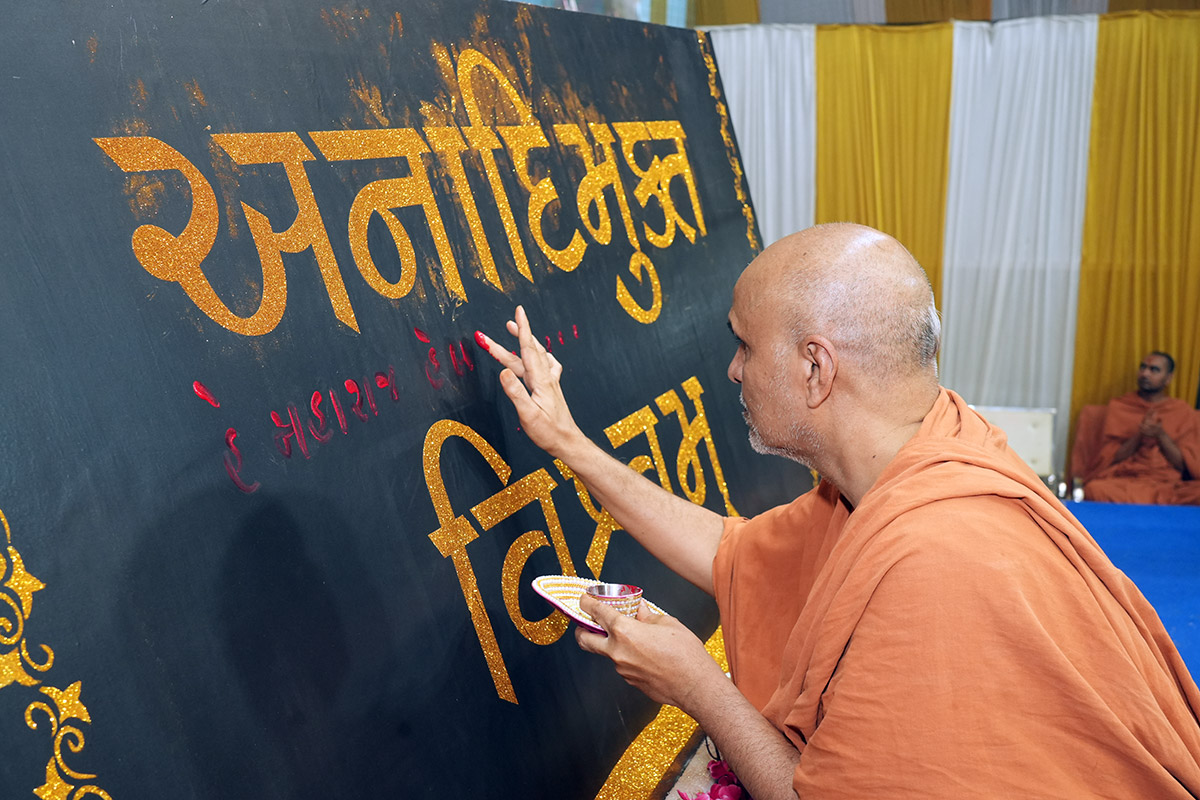 અનાદિમુક્ત
હે મહારાજ હે
વિશ્વમ્